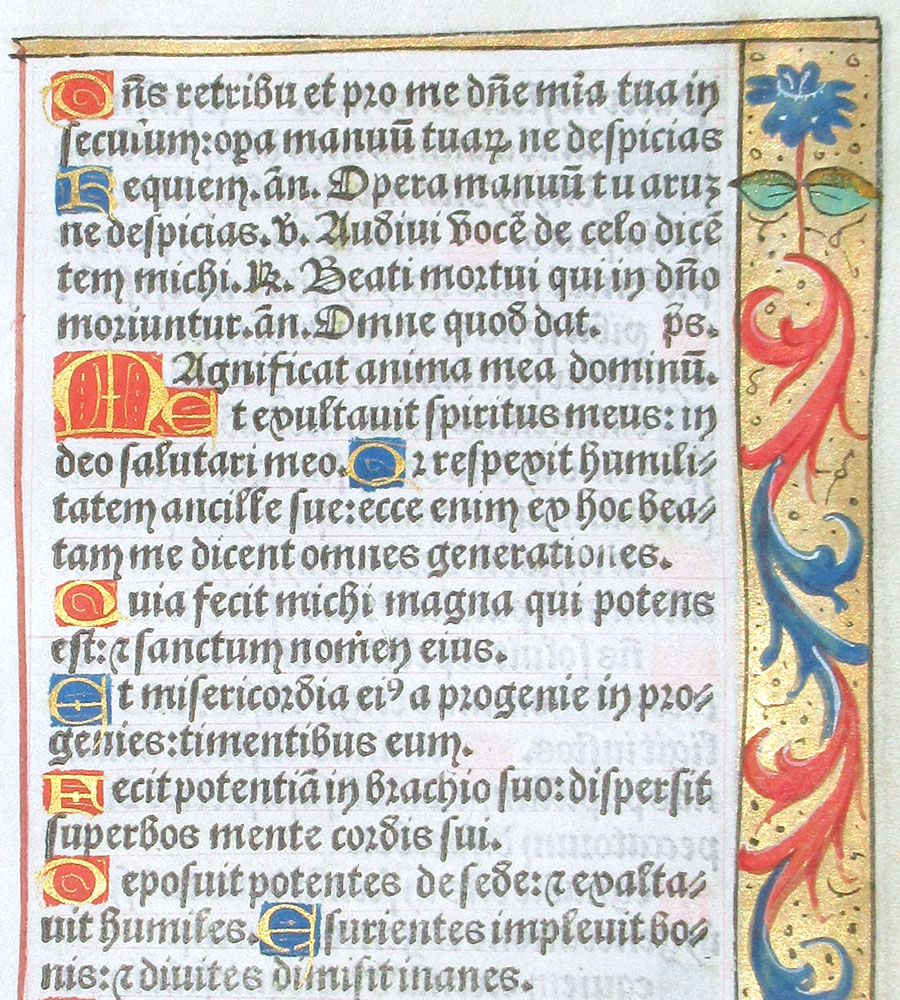 Dñs retribu et pro me dñe mĩa tua in
seculum: oꝑa manuũ tuaꝝ ne despicias
Requiem. ãn. Opera manuũ tuaruz
ne despicias. v̄. Audiui vocẽ de celo dicẽ
tem michi. ℟. Beati mortui qui in dño
moriuntur. ãn. Omne quod dat. p̄s.
Magnificat anima mea dominũ.
Et exultauit spiritus meus: in
deo salutari meo. Qꝛ respexit humili⸗
tatem ancille sue: ecce enim ex hoc bea⸗
tam me dicent omnes generationes.
Quia fecit michi magna qui potens
est: ⁊ sanctum nomen eius.
Et misericordia eiꝰ a progenie in pro⸗
genies: timentibus eum.
Fecit potentiã in brachio suo: dispersit
superbos mente cordis sui.
Deposuit potentes de sede: ⁊ exalta⸗
uit humiles. Esurientes impleuit bo⸗
nis: ⁊ diuites dimisit inanes.